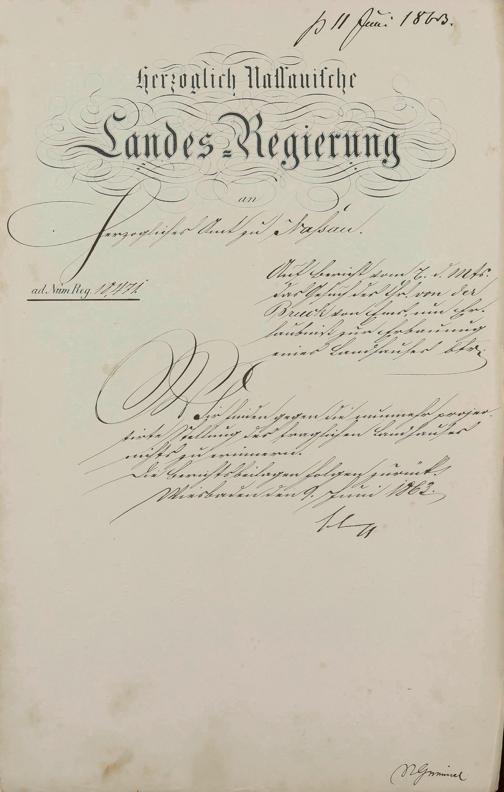 p 11 Juni 1863.
Herzoglich Nassauische
Landes-Regierung
an
Herzogliches Amt zu Nassau.
ad. Num. Reg. 18,471.
Auf Bericht vom 7. d. Mts.
das Gesuch des Hr. von der
Bruck von Ems, um Er-
laubnist zur Erbauung
eines Landhauses betr.
Wir finden gegen die nunmehr projec-
tirte Stellung des fraglichen Landhauses
nichts zu erinnern.
Die Berichtsbeilagen folgen zurück.
Wiesbaden den 9. Juni 1863.